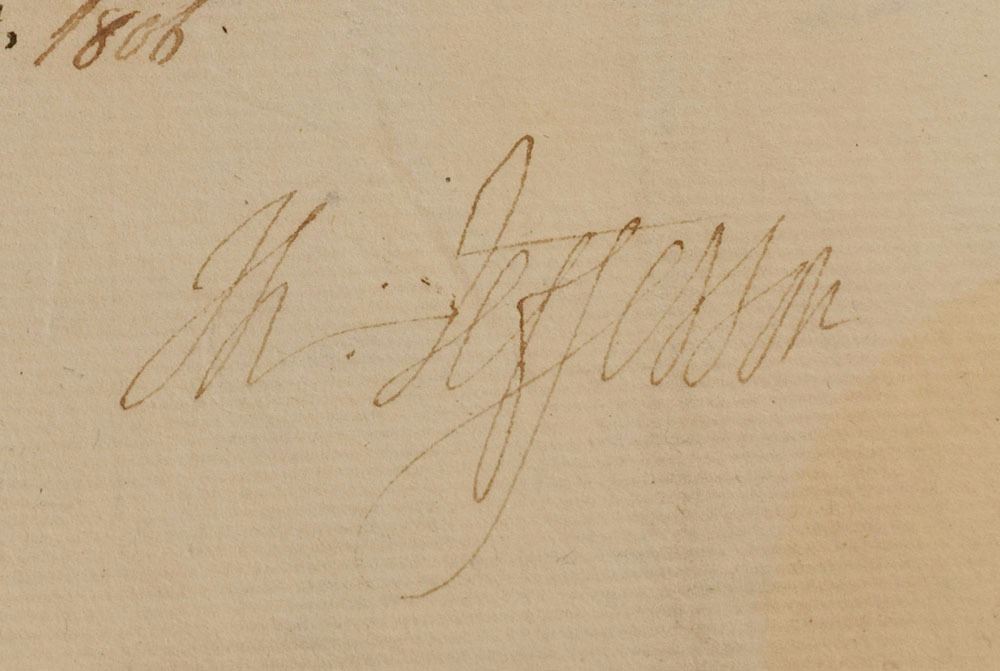 1806.
Th. Jefferson